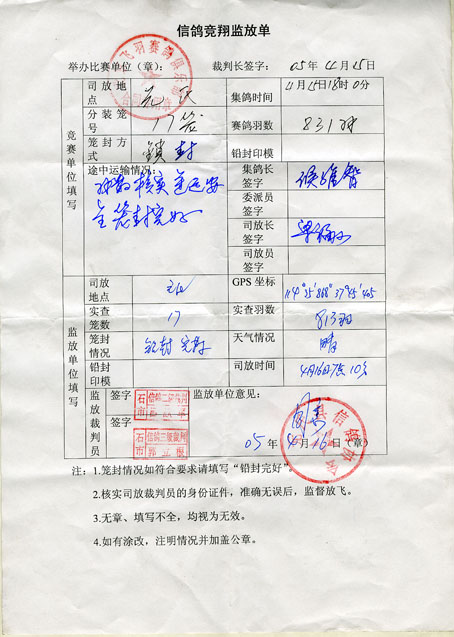 信鸽竞翔监放单
举办比赛单位（章）： 裁判长签字： 05年4月15日
竞赛单位填写
司放地点 集鸽时间 4月15日18时0分
分装笼号 17笼 赛鸽羽数 831羽
笼封方式 鎖封 铅封印模
途中运输情况： 集鸽长签字
安全笼封完好
委派员签字
司放长签字
司放员签字
监放单位填写
司放地点 GPS坐标 114°35′868″ 37°45′405
实查笼数 17 实查羽数 813羽
笼封情况 铅封完好 天气情况 晴
铅封印模 司放时间 4月16日7点10分
监放裁判员 签字 监放单位意见：
签字
05年4月16日（章）
注：1.笼封情况如符合要求请填写“铅封完好”。
2.核实司放裁判员的身份证件，准确无误后，监督放飞。
3.无章、填写不全，均视为无效。
4.如有涂改，注明情况并加盖公章。